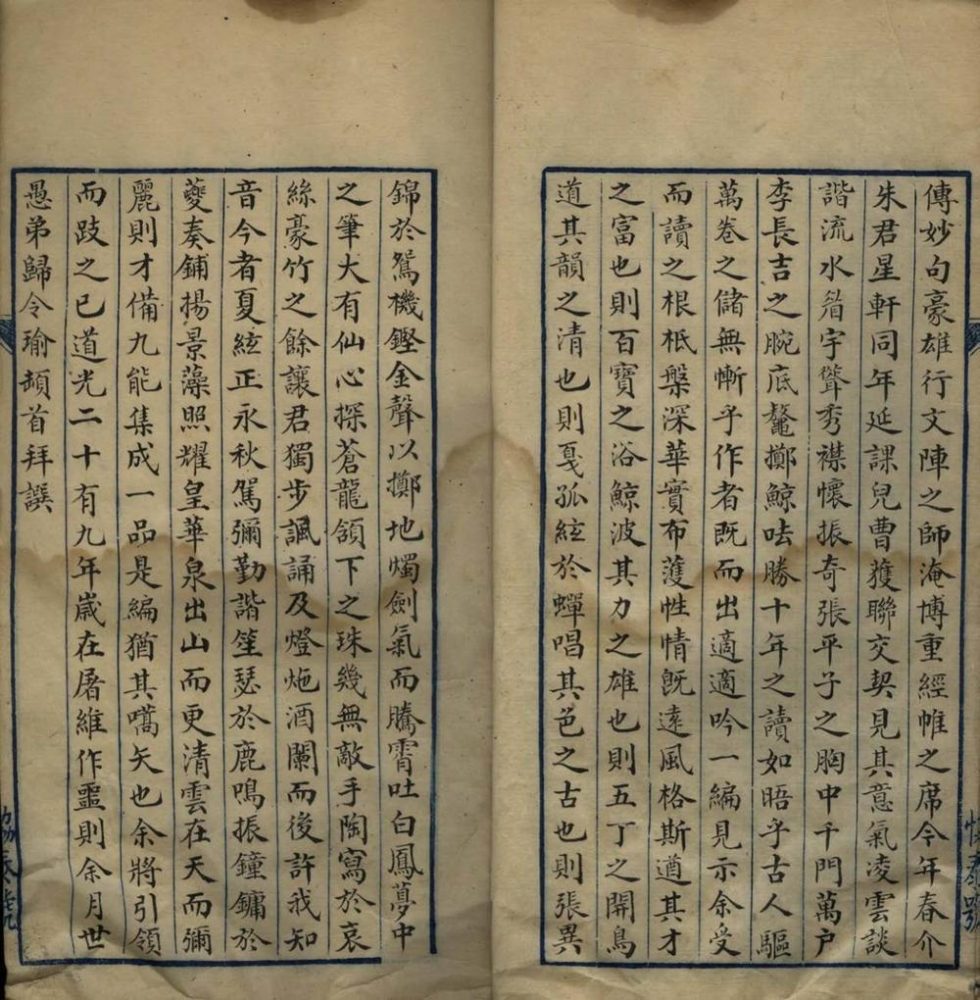 傳妙句豪雄行文陣之師淹博重經帷之席今年春介
朱君星軒同年延課兒曹獲聯交契見其意氣凌雲談
諧流水眉宇聳秀襟懷振奇張平子之胸中千門萬户
李長吉之腕底鼇擲鯨呿勝十年之讀如晤乎古人驅
萬卷之儲無慚乎作者既而出適適吟一編見示余受
而讀之根柢槃深華實布濩性情既遠風格斯遒其才
之富也則百寶之浴鯨波其力之雄也則五丁之開鳥
道其韻之清也則戛孤絃於蟬唱其色之古也則張異
錦於鴛機鏗金聲以擲地燭劍氣而騰霄吐白鳳夢中
之筆大有仙心探蒼龍頷下之珠幾無敵手陶寫於哀
絲豪竹之餘讓君獨步諷誦及燈灺酒闌而後許我知
音今者夏絃正永秋駕彌勤諧笙瑟於鹿鳴振鐘鏞於
夔奏鋪揚景藻照耀皇華泉出山而更清雲在天而彌
麗則才備九能集成一品是編猶其嚆矢也余將引領
而跂之已道光二十有九年歲在屠維作噩則余月世
愚弟歸令瑜頓首拜譔